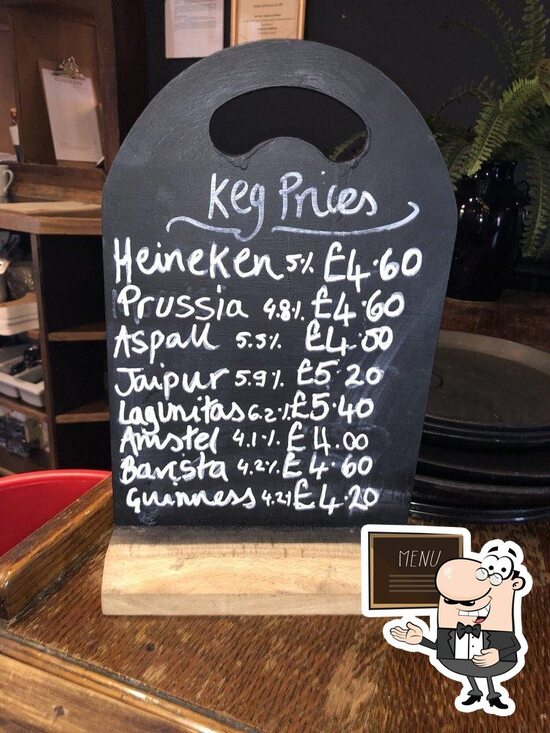 Keg Prices
Heineken 5% £4.60
Prussia 4.8% £4.60
Aspall 5.5%
Jaipur 5.9% £5.20
Lagunitas 6.2% £5.40
Amstel 4.1% £4.00
Barista 4.2% £4.60
Guinness £4.20
MENU